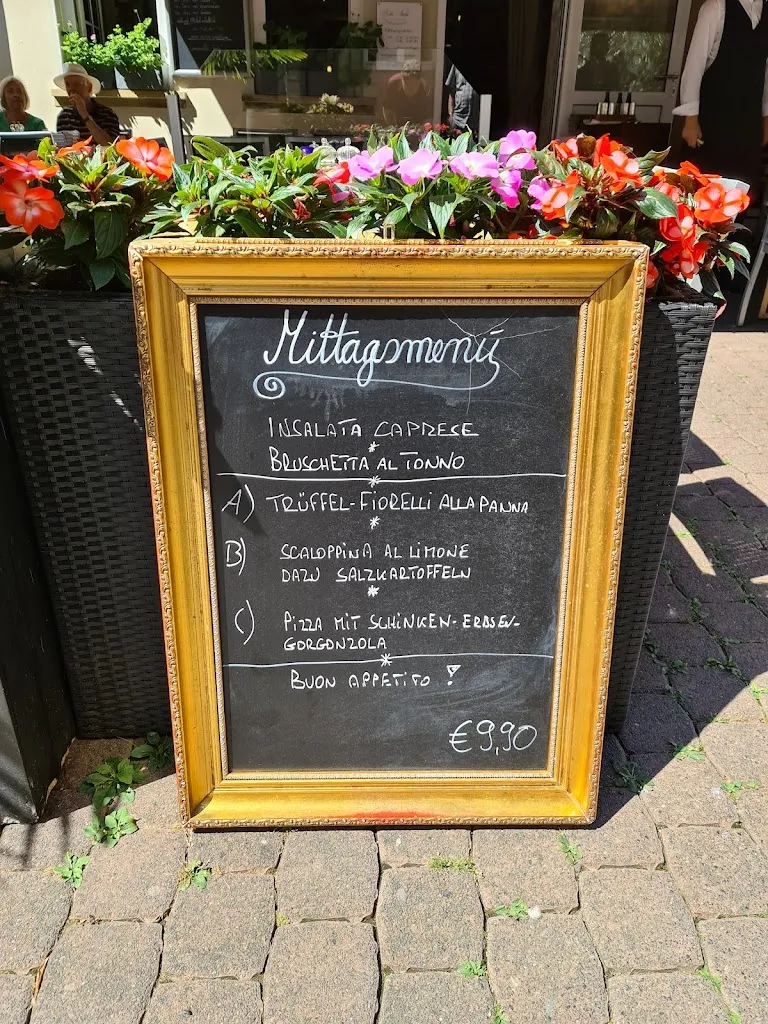 Mittagsmenü
INSALATA CAPRESE
*
BRUSCHETTA AL TONNO
*
A) TRÜFFEL-FIORELLI ALLA PANNA
*
B) SCALOPPINA AL LIMONE
DAZU SALZKARTOFFELN
*
C) PIZZA MIT SCHINKEN-ERBSEN-
GORGONZOLA
*
BUON APPETITO !
€9,90